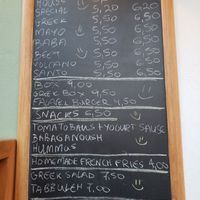 HOUSE
SPECIAL 5,20 6,20
GREEK 5,50 6,50
MAYO 5,50 6,50
BABA 5,50 6,50
BEET 5,50 6,50
VOLCANO 5,50 6,50
SANTO 5,50 6,50
BOX 9,00
GREEK BOX 9,50
FALAFEL BURGER 4,50
SNACKS 6,50
TOMATOBALLS + YOGURT SAUSE
BABAGANOUSH
HUMMUS
HOMEMADE FRENCH FRIES 4,00
GREEK SALAD 7,50
TABBULEH 7,00